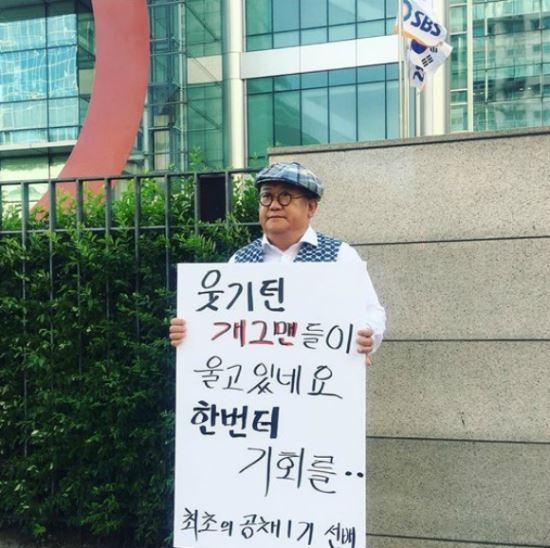 SBS
웃기던
개그맨들이
울고있네요
한번더
기회를..
최초의 공채1기 선배